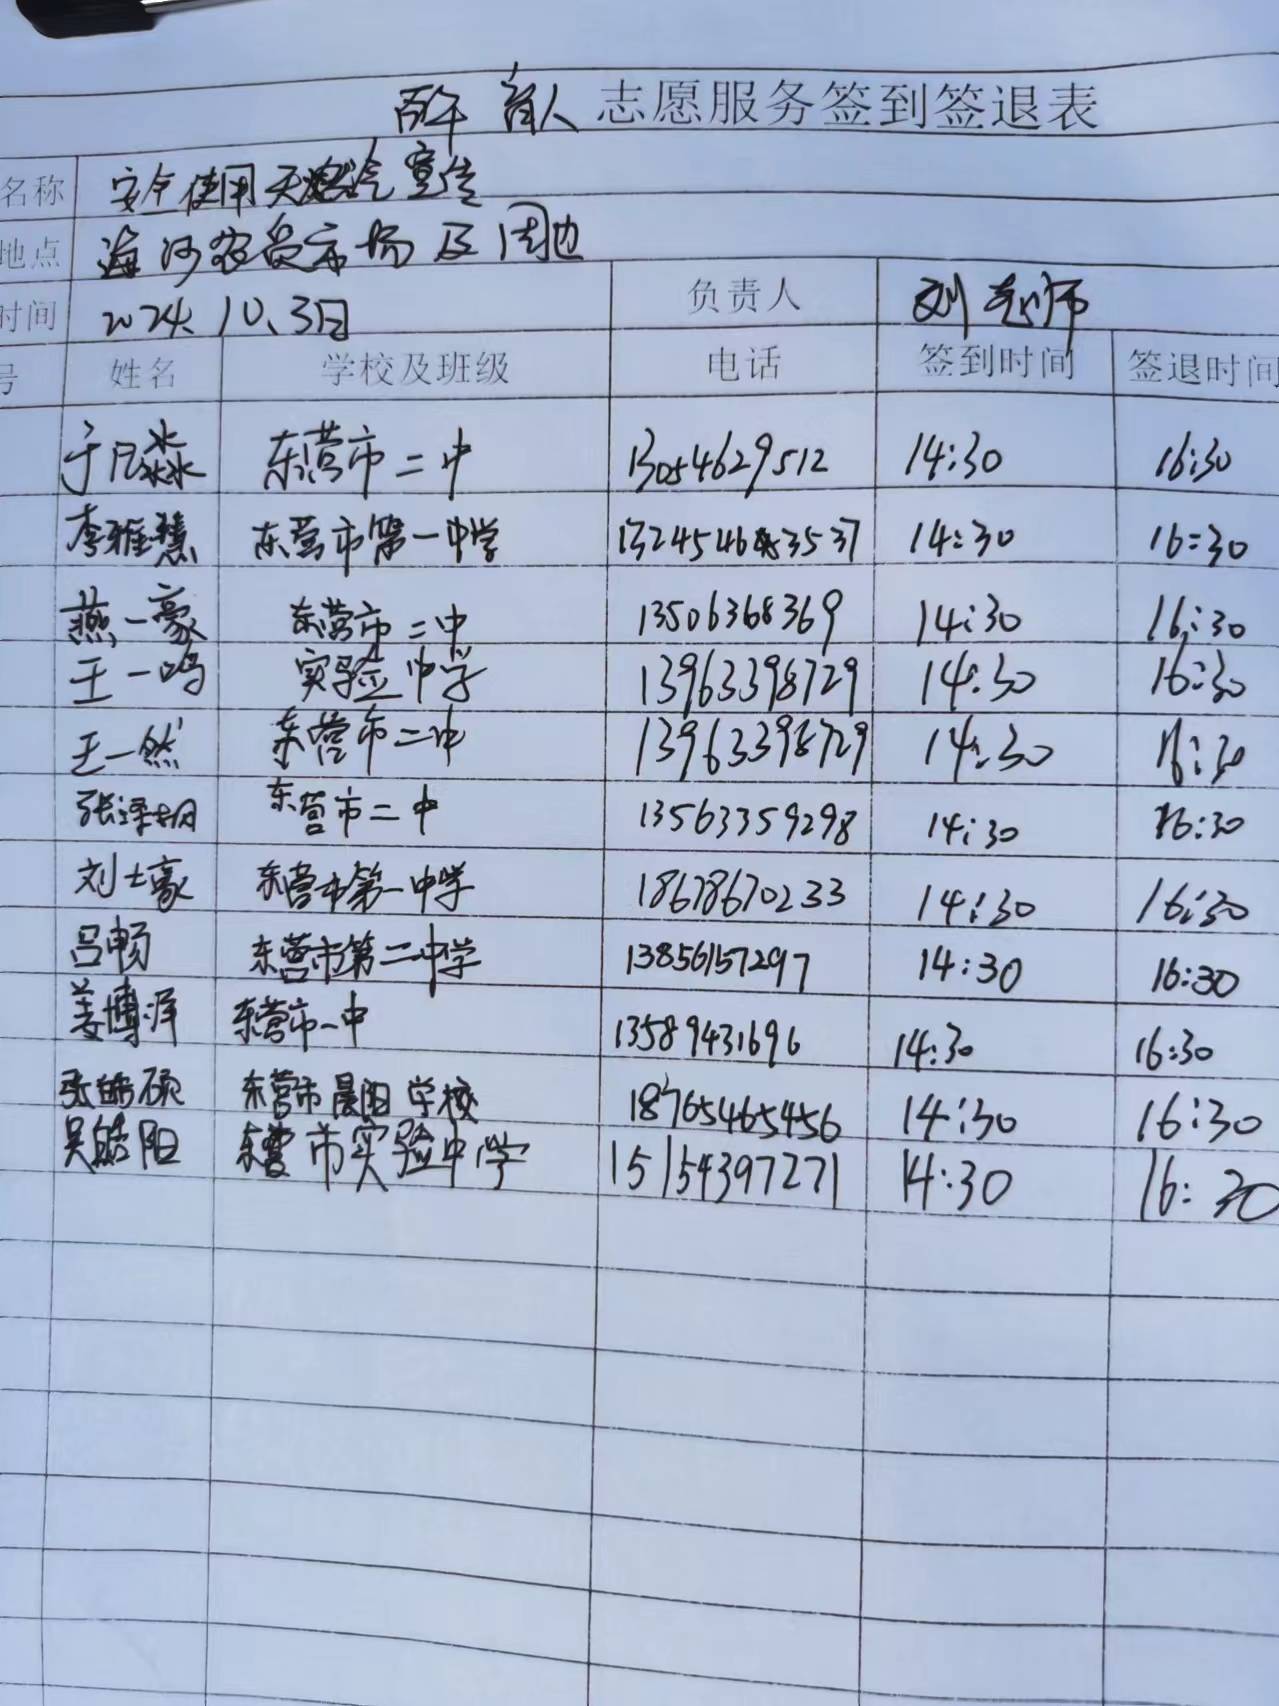 百年育人志愿服务签到签退表
名称 安全使用天燃气宣传
地点 海河农贸市场及周边
时间 2024.10.3日 负责人 刘老师
号 姓名 学校及班级 电话 签到时间 签退时间
于凡淼 东营市二中 13054629512 14:30 16:30
李雅慧 东营市第一中学 14:30 16:30
燕一豪 东营市二中 13506368369 14:30 16:30
王一鸣 实验中学 13963398729 14:30 16:30
王一然 东营市二中 13963398729 14:30 16:30
东营市二中 13563359298 14:30 16:30
刘士豪 东营市第一中学 18678670233 14:30 16:30
吕畅 东营市第二中学 13856157297 14:30 16:30
姜博洋 东营市一中 13589431696 14:30 16:30
张皓硕 东营市晨阳学校 18765465456 14:30 16:30
吴皓阳 东营市实验中学 15154397271 14:30 16:30